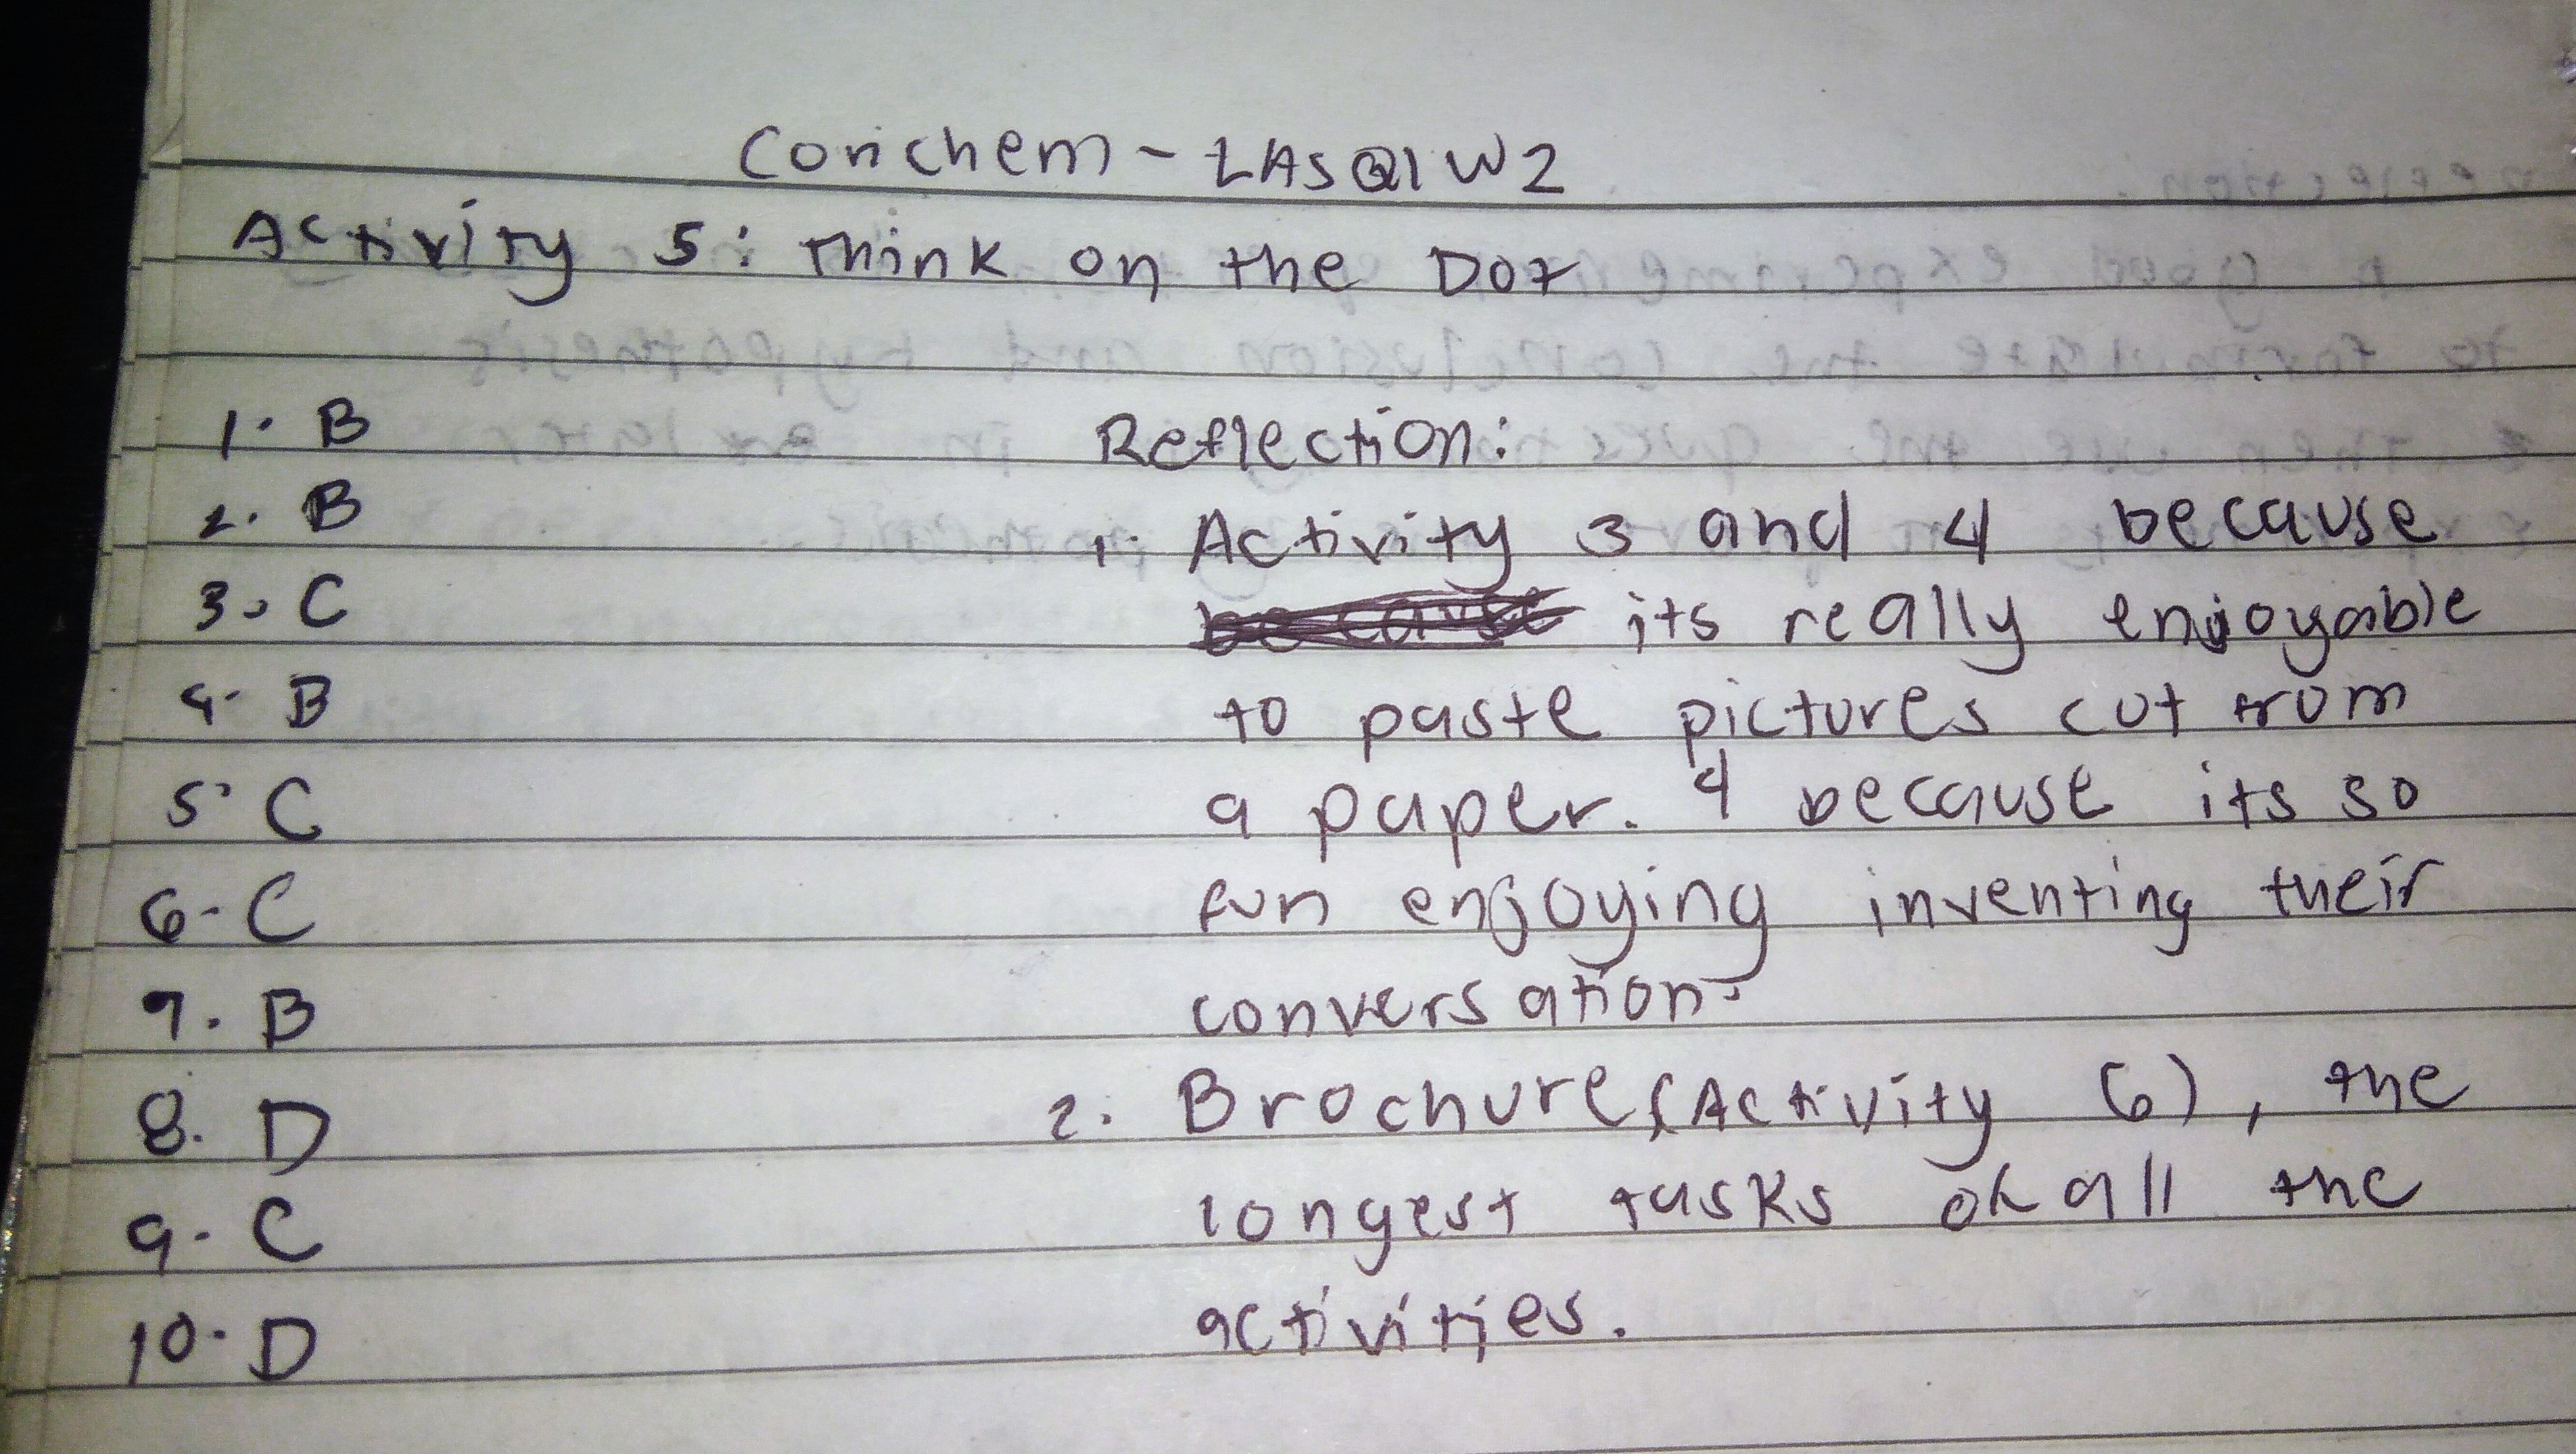 Conchem - LAS Q1 W2
Activity 5: Think on the Dot
1. B
2. B
3. C
4. B
5. C
6. C
7. B
8. D
9. C
10. D
Reflection:
1. Activity 3 and 4 because
because its really enjoyable
to paste pictures cut from
a paper. 4 because its so
fun enjoying inventing their
conversation.
2. Brochure (Activity 6), the
longest tasks of all the
activities.